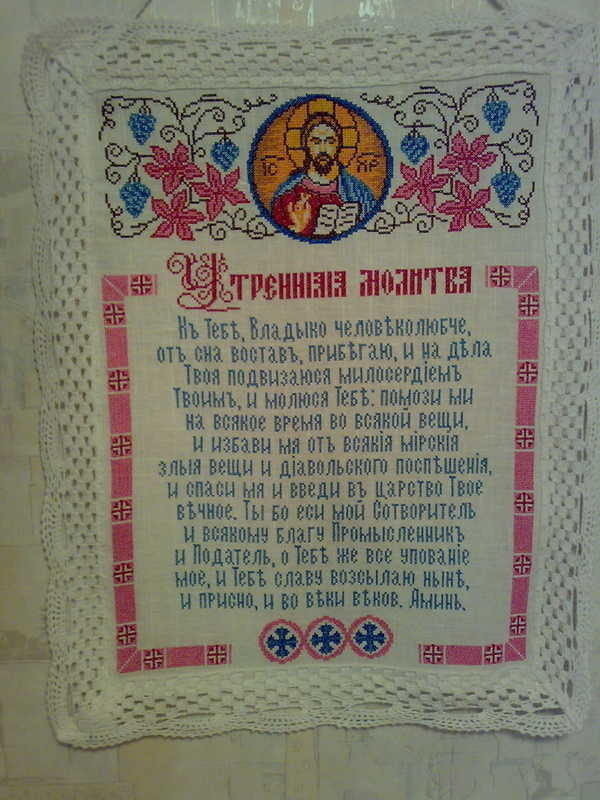 ІС ХР
Утренніѧіѧ молитва
Къ Тебѣ, Владыко человѣколюбче,
отъ сна воставъ, прибѣгаю, и на дѣла
Твоя подвизаюся милосердіемъ
Твоимъ, и молюся Тебѣ: помози ми
на всякое время во всякой вещи,
и избави мя отъ всякія мірскія
злыя вещи и діавольского поспѣшенія,
и спаси мя и введи въ царство Твое
вѣчное. Ты бо еси мой Сотворитель
и всякому благу Промысленникъ
и Податель, о Тебѣ же все упованіе
мое, и Тебѣ славу возсылаю нынѣ,
и присно, и во вѣки вѣков. Аминь.